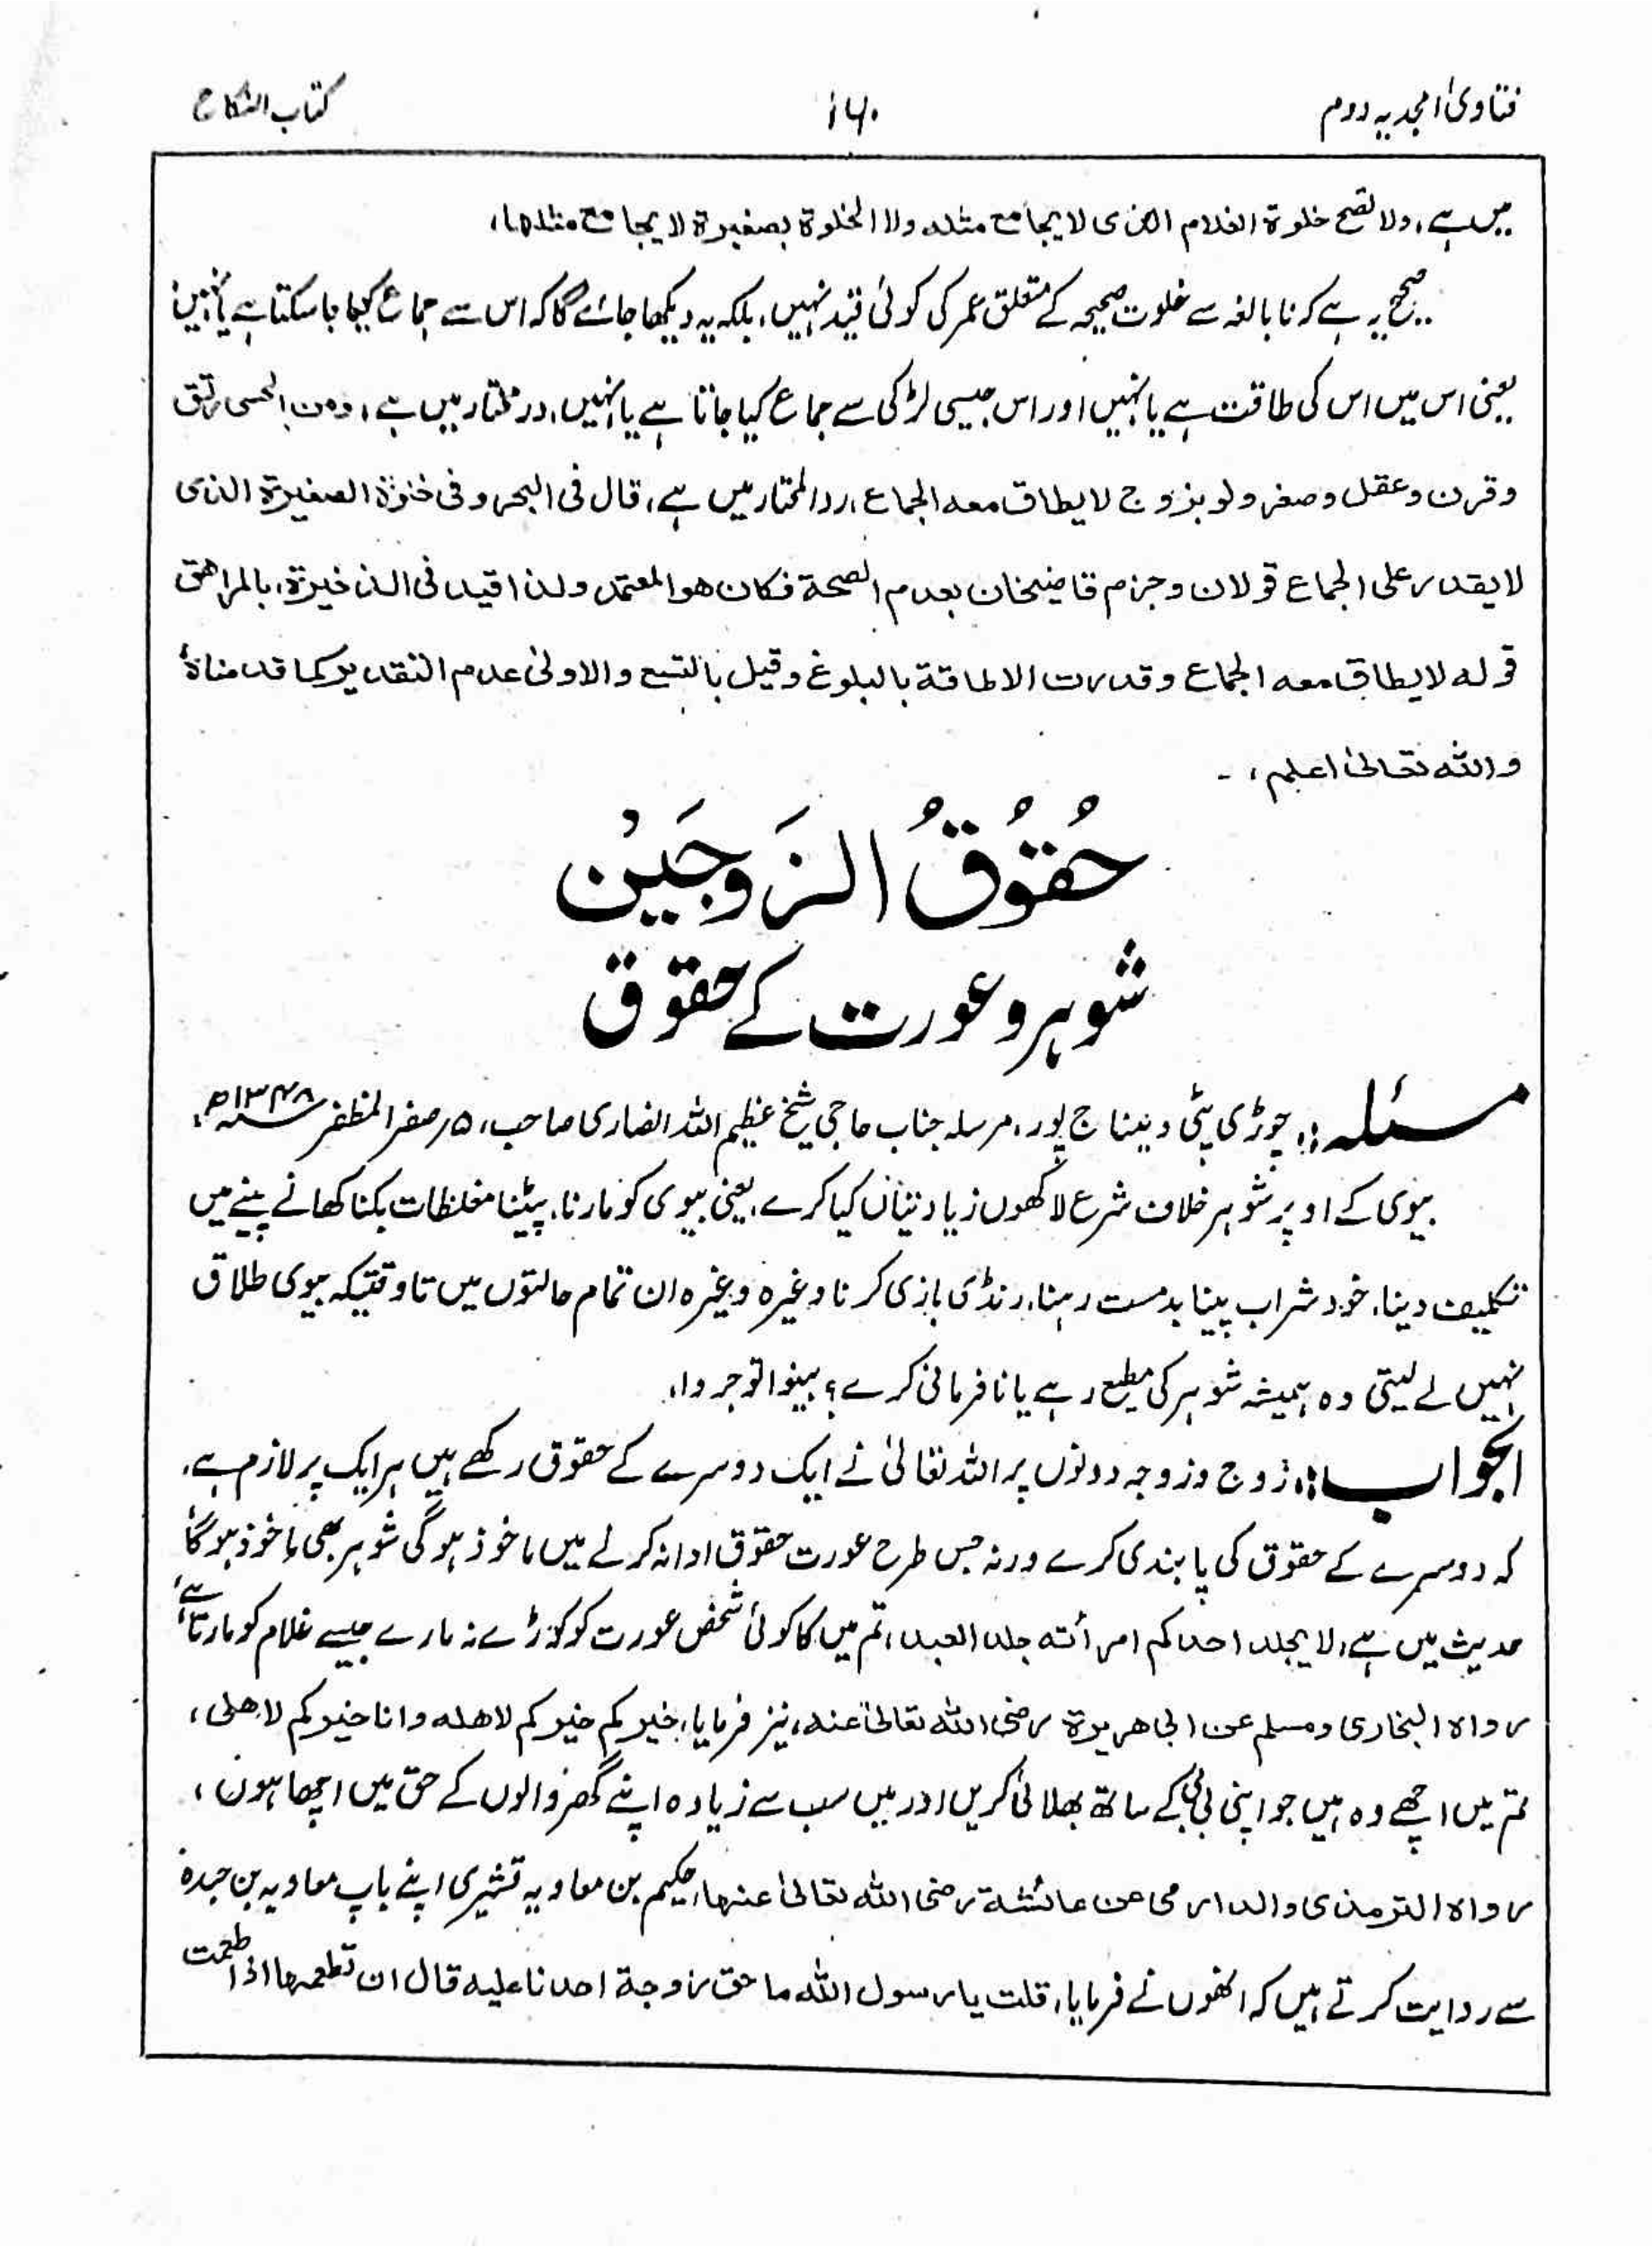 فتاویٰ امجدیہ دوم
۱۶۰
کتاب النکاح
میں ہے، ولا تصح خلوة الغلام الذی لا یجامع مثله ولا الخلوة بصغیرة لا یجامع مثلها،
صحیح یہ ہے کہ نابالغہ سے خلوت صحیحہ کے متعلق عمر کی کوئی قید نہیں، بلکہ یہ دیکھا جائے گا کہ اس سے جماع کیا جا سکتا ہے یا نہیں
یعنی اس میں اس کی طاقت ہے یا نہیں اور اس جیسی لڑکی سے جماع کیا جاتا ہے یا نہیں، درمختار میں ہے، ومن الحسی رتق
وقرن وعقل وصغر ولو بزوج لا یطاق معه الجماع، ردالمحتار میں ہے، قال فی البحر وفی خلوة الصغیرة الذی
لا یقدر علی الجماع قولان وجزم قاضیخان بعدم الصحة فکان هو المعتمد ولذا قید فی الذخیرة، بالمراهق
قوله لا یطاق معه الجماع وقدرت الاطاقة بالبلوغ وقیل بالتسع والاولیٰ عدم التقدیر کما قدمناہ
واللہ تعالیٰ اعلم، ۔
حُقُوقُ الزَوجَین
شوہر و عورت کے حقوق
مسئلہ:، چوڑی پٹی دیناج پور، مرسلہ جناب حاجی شیخ عظیم اللہ انصاری صاحب، ۵ر صفر المظفر سنہ ۱۳۴۸ھ،
بیوی کے اوپر شوہر خلاف شرع لاکھوں زیادتیاں کیا کرے، یعنی بیوی کو مارنا، پیٹنا مغلظات بکنا کھانے پینے میں
تکلیف دینا، خود شراب پینا بدمست رہنا، رنڈی بازی کرنا وغیرہ وغیرہ ان تمام حالتوں میں تاوقتیکہ بیوی طلاق
نہیں لے لیتی وہ ہمیشہ شوہر کی مطیع رہے یا نافرمانی کرے؟ بینوا توجروا،
الجواب:، زوج و زوجہ دونوں پر اللہ تعالیٰ نے ایک دوسرے کے حقوق رکھے ہیں ہر ایک پر لازم ہے،
کہ دوسرے کے حقوق کی پابندی کرے ورنہ جس طرح عورت حقوق ادا نہ کرنے میں ماخوذ ہوگی شوہر بھی ماخوذ ہوگا
حدیث میں ہے، لا یجلد احدکم امرأته جلد العبد، تم میں کا کوئی شخص عورت کو کوڑے نہ مارے جیسے غلام کو مارتا ہے،
رواہ البخاری ومسلم عن ابی هریرة رضی اللہ تعالیٰ عنه، نیز فرمایا، خیرکم خیرکم لاهله وانا خیرکم لاهلی،
تم میں اچھے وہ ہیں جو اپنی بی بی کے ساتھ بھلائی کریں اور میں سب سے زیادہ اپنے گھر والوں کے حق میں اچھا ہوں،
رواہ الترمذی والدارمی عن عائشة رضی اللہ تعالیٰ عنها، حکیم بن معاویہ قشیری اپنے باپ معاویہ بن حیدہ
سے روایت کرتے ہیں کہ انھوں نے فرمایا، قلت یا رسول اللہ ما حق زوجة احدنا علیه قال ان تطعمها اذا طعمت